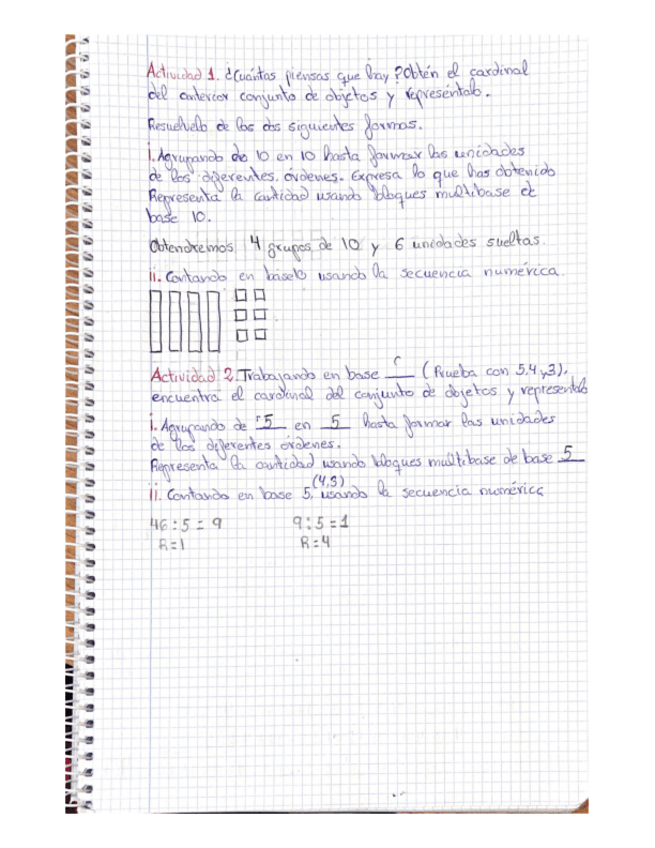 Actividad 1. ¿Cuántas piensas que hay? Obtén el cardinal
del anterior conjunto de objetos y represéntalo.
Resuélvelo de las dos siguientes formas.
i. Agrupando de 10 en 10 hasta formar las unidades
de los diferentes órdenes. Expresa lo que has obtenido
Representa la cantidad usando bloques multibase de
base 10.
Obtendremos 4 grupos de 10 y 6 unidades sueltas.
ii. Contando en base 10 usando la secuencia numérica.
Actividad 2. Trabajando en base ___ (Prueba con 5,4 y 3),
encuentra el cardinal del conjunto de objetos y represéntalo
i. Agrupando de 5 en 5 hasta formar las unidades
de los diferentes órdenes.
Representa la cantidad usando bloques multibase de base 5
(4,3)
ii. Contando en base 5, usando la secuencia numérica
46 : 5 = 9 9 : 5 = 1
R = 1 R = 4